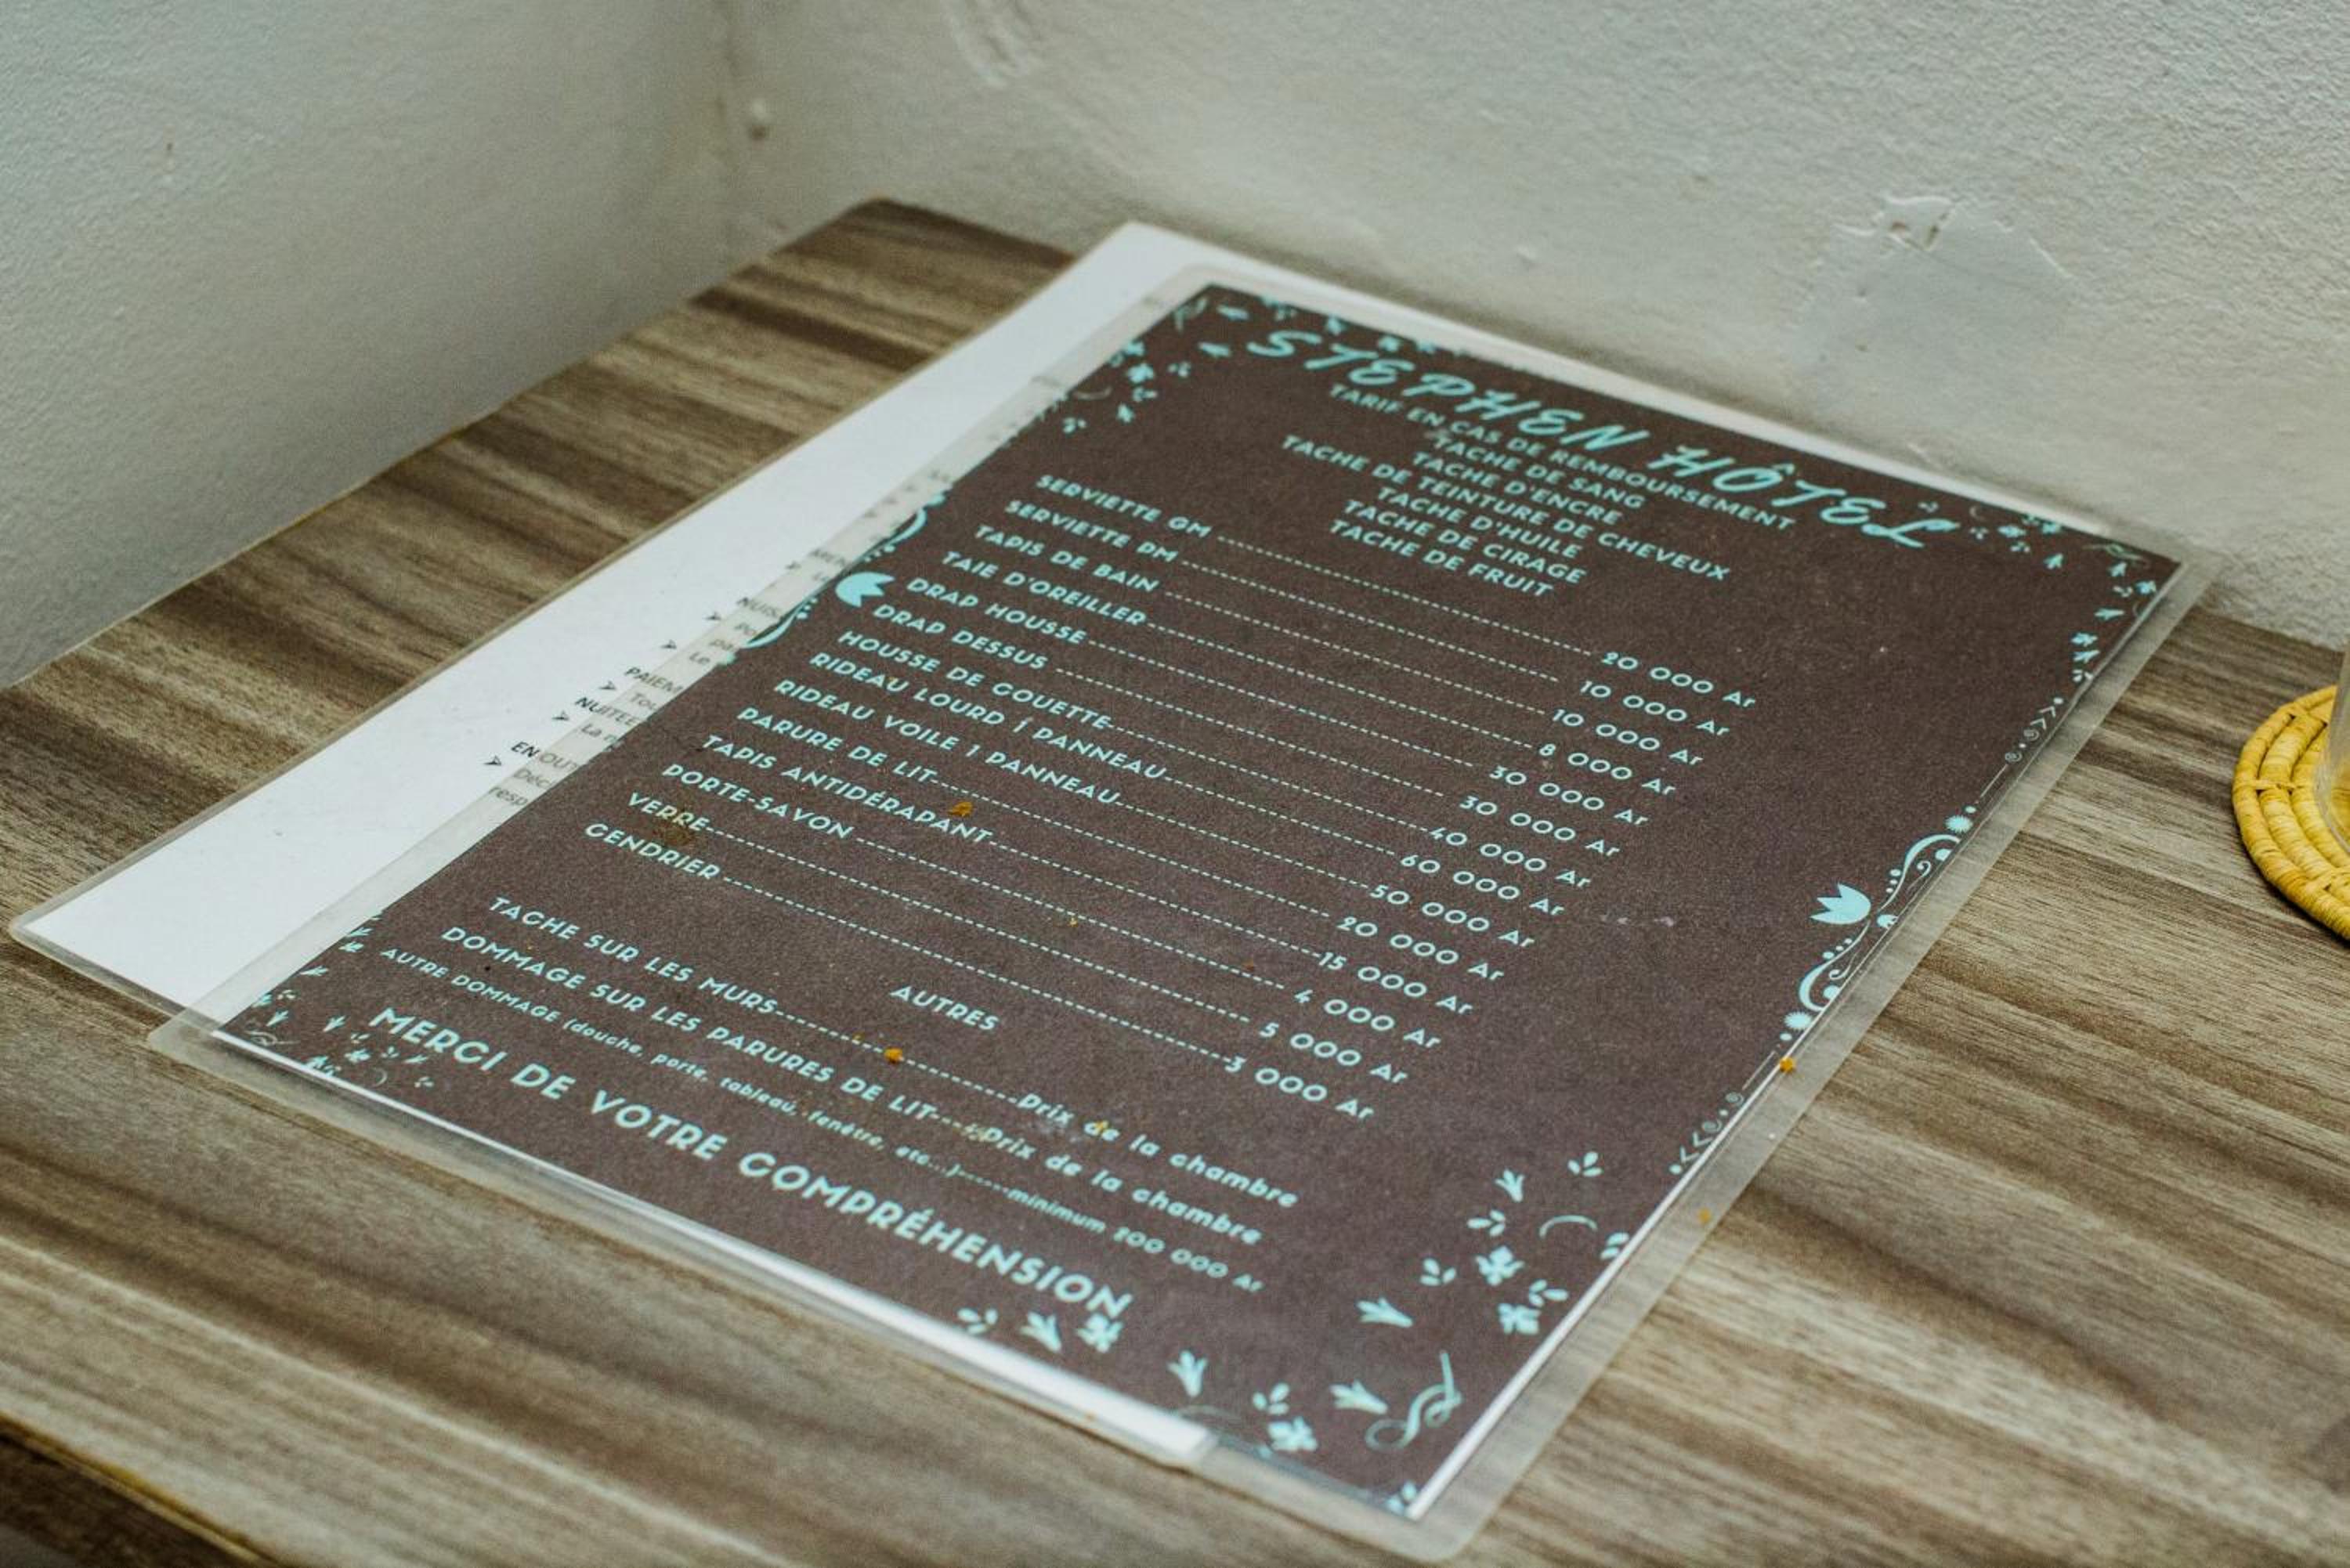 STEPHEN HÔTEL
TARIF EN CAS DE REMBOURSEMENT
TACHE DE SANG
TACHE D'ENCRE
TACHE DE TEINTURE DE CHEVEUX
TACHE D'HUILE
TACHE DE CIRAGE
TACHE DE FRUIT
SERVIETTE GM 20 000 Ar
SERVIETTE PM 10 000 Ar
TAPIS DE BAIN 10 000 Ar
TAIE D'OREILLER 8 000 Ar
DRAP HOUSSE 30 000 Ar
DRAP DESSUS 30 000 Ar
HOUSSE DE COUETTE 40 000 Ar
RIDEAU LOURD 1 PANNEAU 60 000 Ar
RIDEAU VOILE 1 PANNEAU 50 000 Ar
PARURE DE LIT 20 000 Ar
TAPIS ANTIDÉRAPANT 15 000 Ar
PORTE-SAVON 4 000 Ar
VERRE 5 000 Ar
CENDRIER 3 000 Ar
AUTRES
TACHE SUR LES MURS Prix de la chambre
DOMMAGE SUR LES PARURES DE LIT Prix de la chambre
AUTRE DOMMAGE (douche, porte, tableau, fenêtre, etc...) minimum 200 000 Ar
MERCI DE VOTRE COMPRÉHENSION
NUIS
Le
PAIEM
Tou
NUITEE
La n
EN OUT
Décl
resp